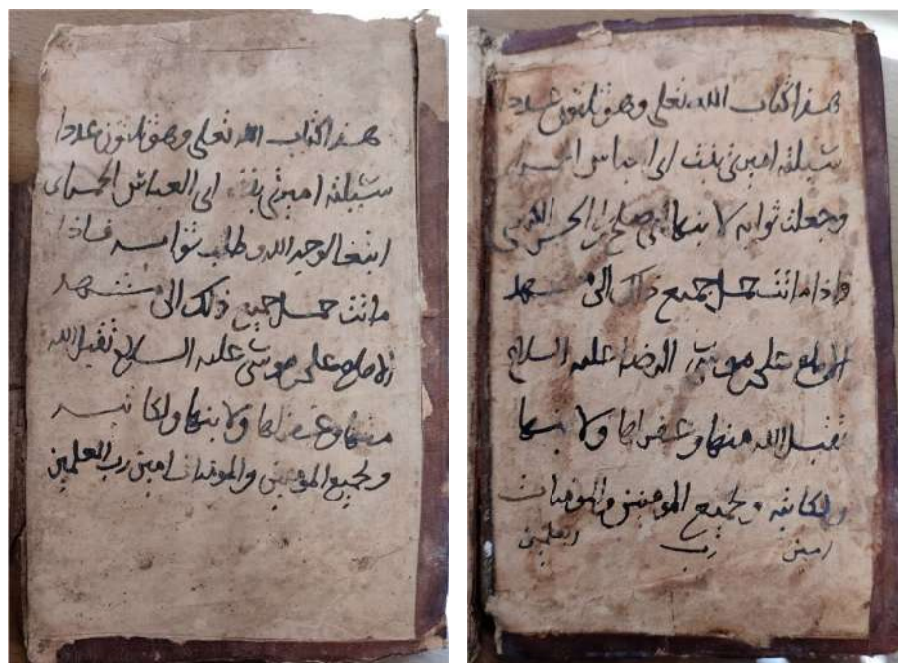 هذا كتاب الله تعلى وهو ثلثون عددا
سبلته اميرتي بنت ابى العباس
ابتغا لوجه الله وطلب ثوابه فاذا
ماتت حمل جميع ذلك الى مشهد
الامام على بن موسى عليه السلام تقبل الله
منها وغفر لها ولابنها ولكاتبه
ولجميع المومنين والمومنات امين رب العلمين
هذا كتاب الله تعلى وهو ثلثون عددا
سبلته اميرتي بنت ابى العباس
وجعلت ثوابه لابنها ابى صلح بن الحسن
فاذا ماتت حمل جميع ذلك الى مشهد
الامام على بن موسى الرضا عليه السلام
تقبل الله منها وغفر لها ولابنها
ولكاتبه ولجميع المومنين والمومنات
امين رب العلمين